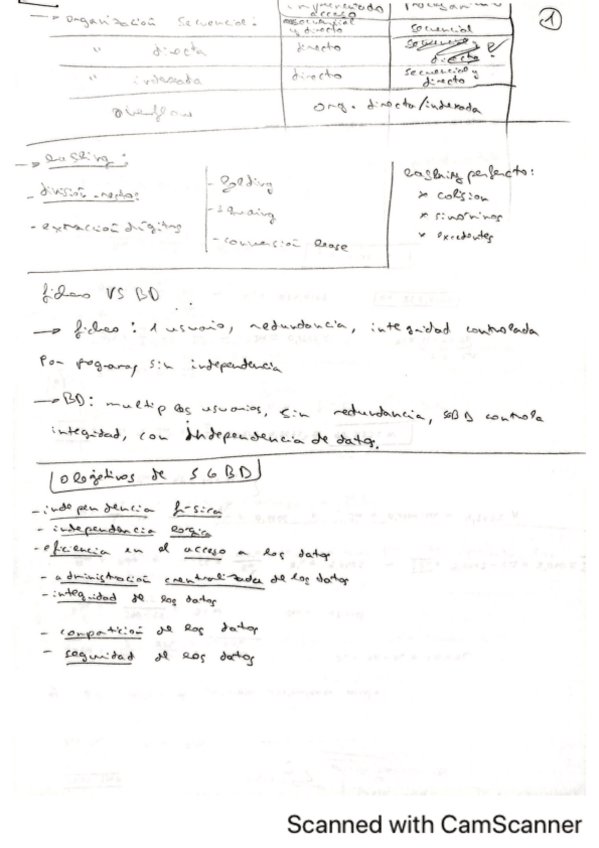 ①
acceso
→ organización secuencial:
secuencial y directo
secuencial
" directa
directo
" indexada
directo
secuencial y directo
overflow
org. directa/indexada
→ hashing:
- división-restos
- extracción dígitos
- folding
- conversión base
hashing perfecto:
× colision
× sinónimos
× excedentes
ficheo VS BD
→ ficheo: 1 usuario, redundancia, integridad controlada
por programas, sin independencia
→ BD: multiples usuarios, sin redundancia, controla
integridad, con independencia de datos.
Objetivos de SGBD
- independencia física
- independencia lógica
- eficiencia en el acceso a los datos
- administración centralizada de los datos
- integridad de los datos
- compartición de los datos
- seguridad de los datos
Scanned with CamScanner